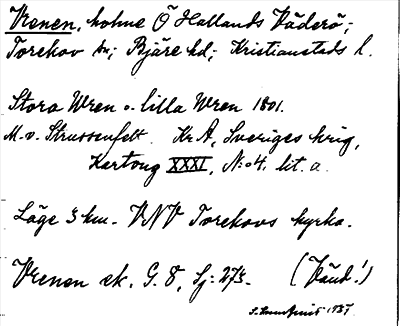 Vrenen, holme Ö Hallands Väderö;
Torekov sn; Bjäre hd; Kristianstads l.
Stora Wren o. lilla Wren 1801.
M. v. Strussenfelt. Kr A, Sveriges krig,
Kartong XXXI, N:o 4. lit. a.
Läge 3 km. VNV Torekovs kyrka.
Vrenen ek. G. 8, Sj: 273. (Vänd!)
1937